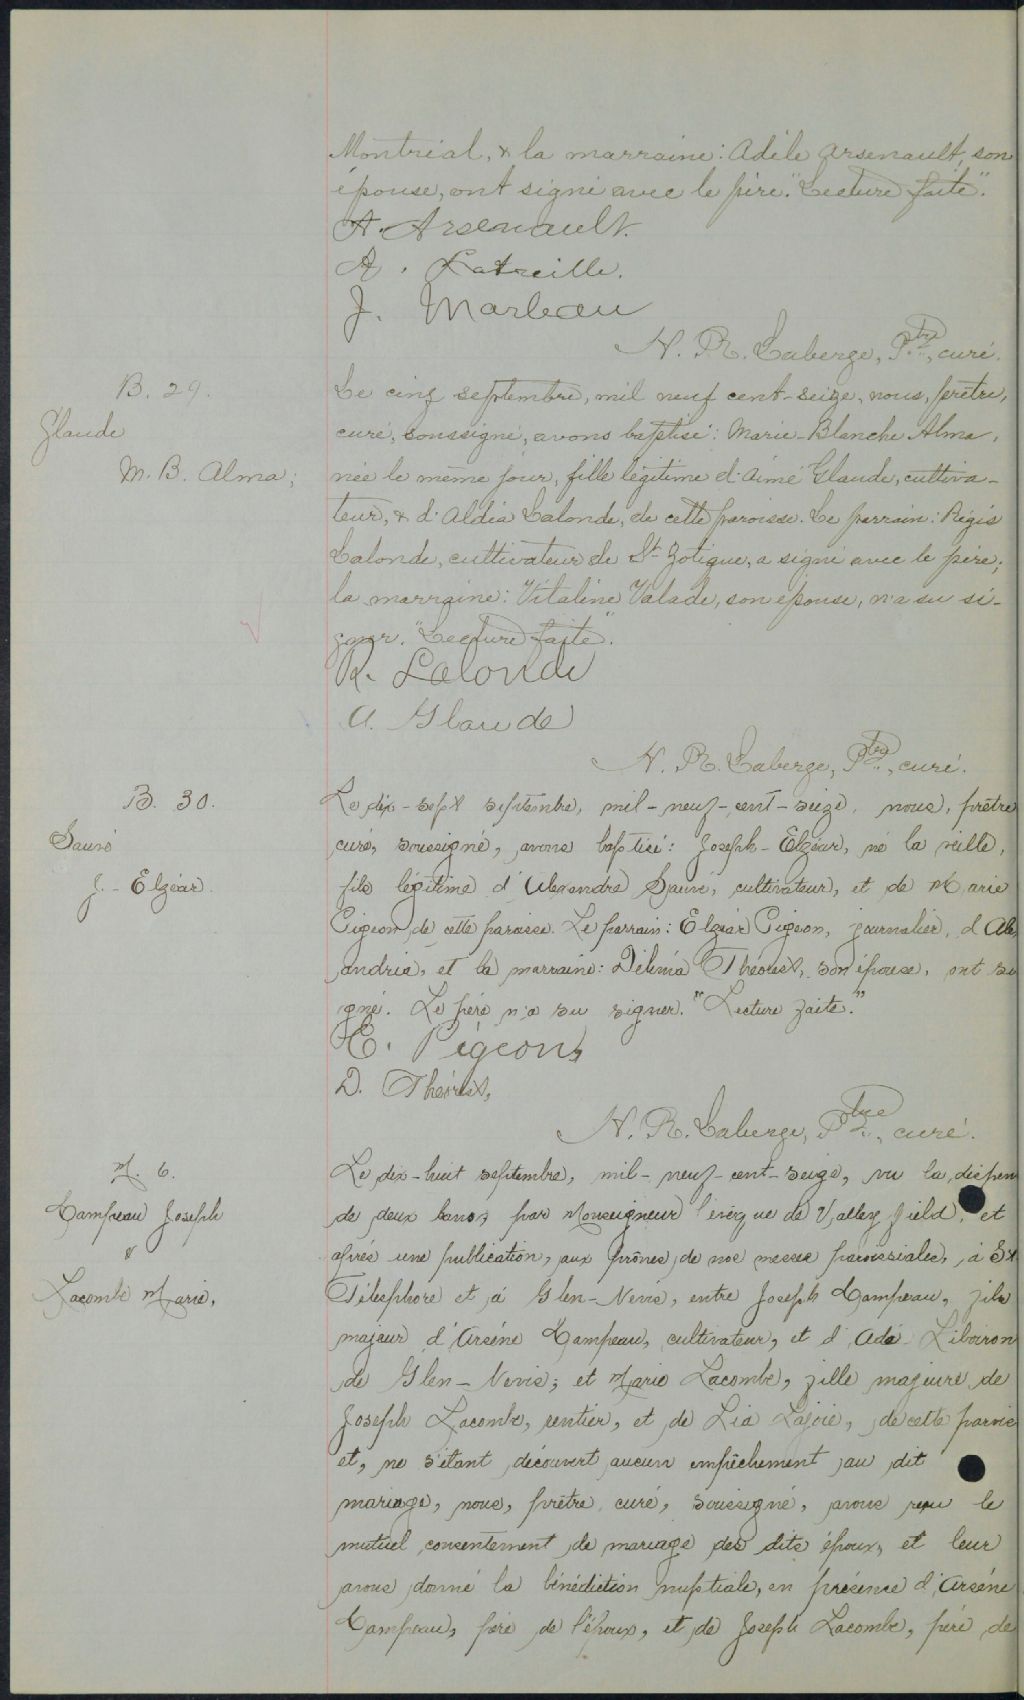 Montréal, & la marraine: Adèle Arsenault, son
épouse, ont signé avec le père. "Lecture faite".
A. Arsenault.
A. Latreille.
J. Marleau
N. R. Laberge, Ptre, curé.
B. 29.
Glaude
M. B. Alma;
Le cinq septembre, mil neuf cent-seize, nous, prêtre,
curé, soussigné, avons baptisé: Marie-Blanche Alma,
née le même jour, fille légitime d'Aimé Glaude, cultiva-
teur, & d'Aldéa Lalonde, de cette paroisse. Le parrain: Régis
Lalonde, cultivateur de St-Zotique, a signé avec le père;
la marraine: Vitaline Valade, son épouse, n'a su si-
gner. "Lecture faite".
R. Lalonde
A. Glaude
N. R. Laberge, Ptre, curé.
B. 30.
Sauvé
J.-Elzéar.
Le dix-sept septembre, mil-neuf-cent-seize, nous, prêtre
curé, soussigné, avons baptisé: Joseph-Elzéar, né la veille,
fils légitime d'Alexandre Sauvé, cultivateur, et de Marie
Pigeon de cette paroisse. Le parrain: Elzéar Pigeon, journalier, d'Alex
andria, et la marraine: Délima Théoret, son épouse, ont si
gné. Le père n'a su signer. "Lecture faite."
E. Pigeon,
D. Théoret,
N. R. Laberge, Ptre, curé.
M. 6.
Campeau Joseph
&
Lacombe Marie,
Le dix-huit septembre, mil-neuf-cent-seize, vu la dispen
de deux bans, par Monseigneur l'évêque de Valleyfield, et
après une publication, aux prônes, de nos messes paroissiales, à St
Télesphore et à Glen-Nevis, entre Joseph Campeau, fils
majeur d'Arsène Campeau, cultivateur, et d'Ada Liboiron
de Glen-Nevis; et Marie Lacombe, fille majeure de
Joseph Lacombe, rentier, et de Lia Lajoie, de cette paroisse
et, ne s'étant découvert aucun empêchement au dit
mariage, nous, prêtre, curé, soussigné, avons reçu le
mutuel consentement de mariage des dits époux, et leur
avons donné la bénédiction nuptiale, en présence d'Arsène
Campeau, père de l'époux, et de Joseph Lacombe, père de